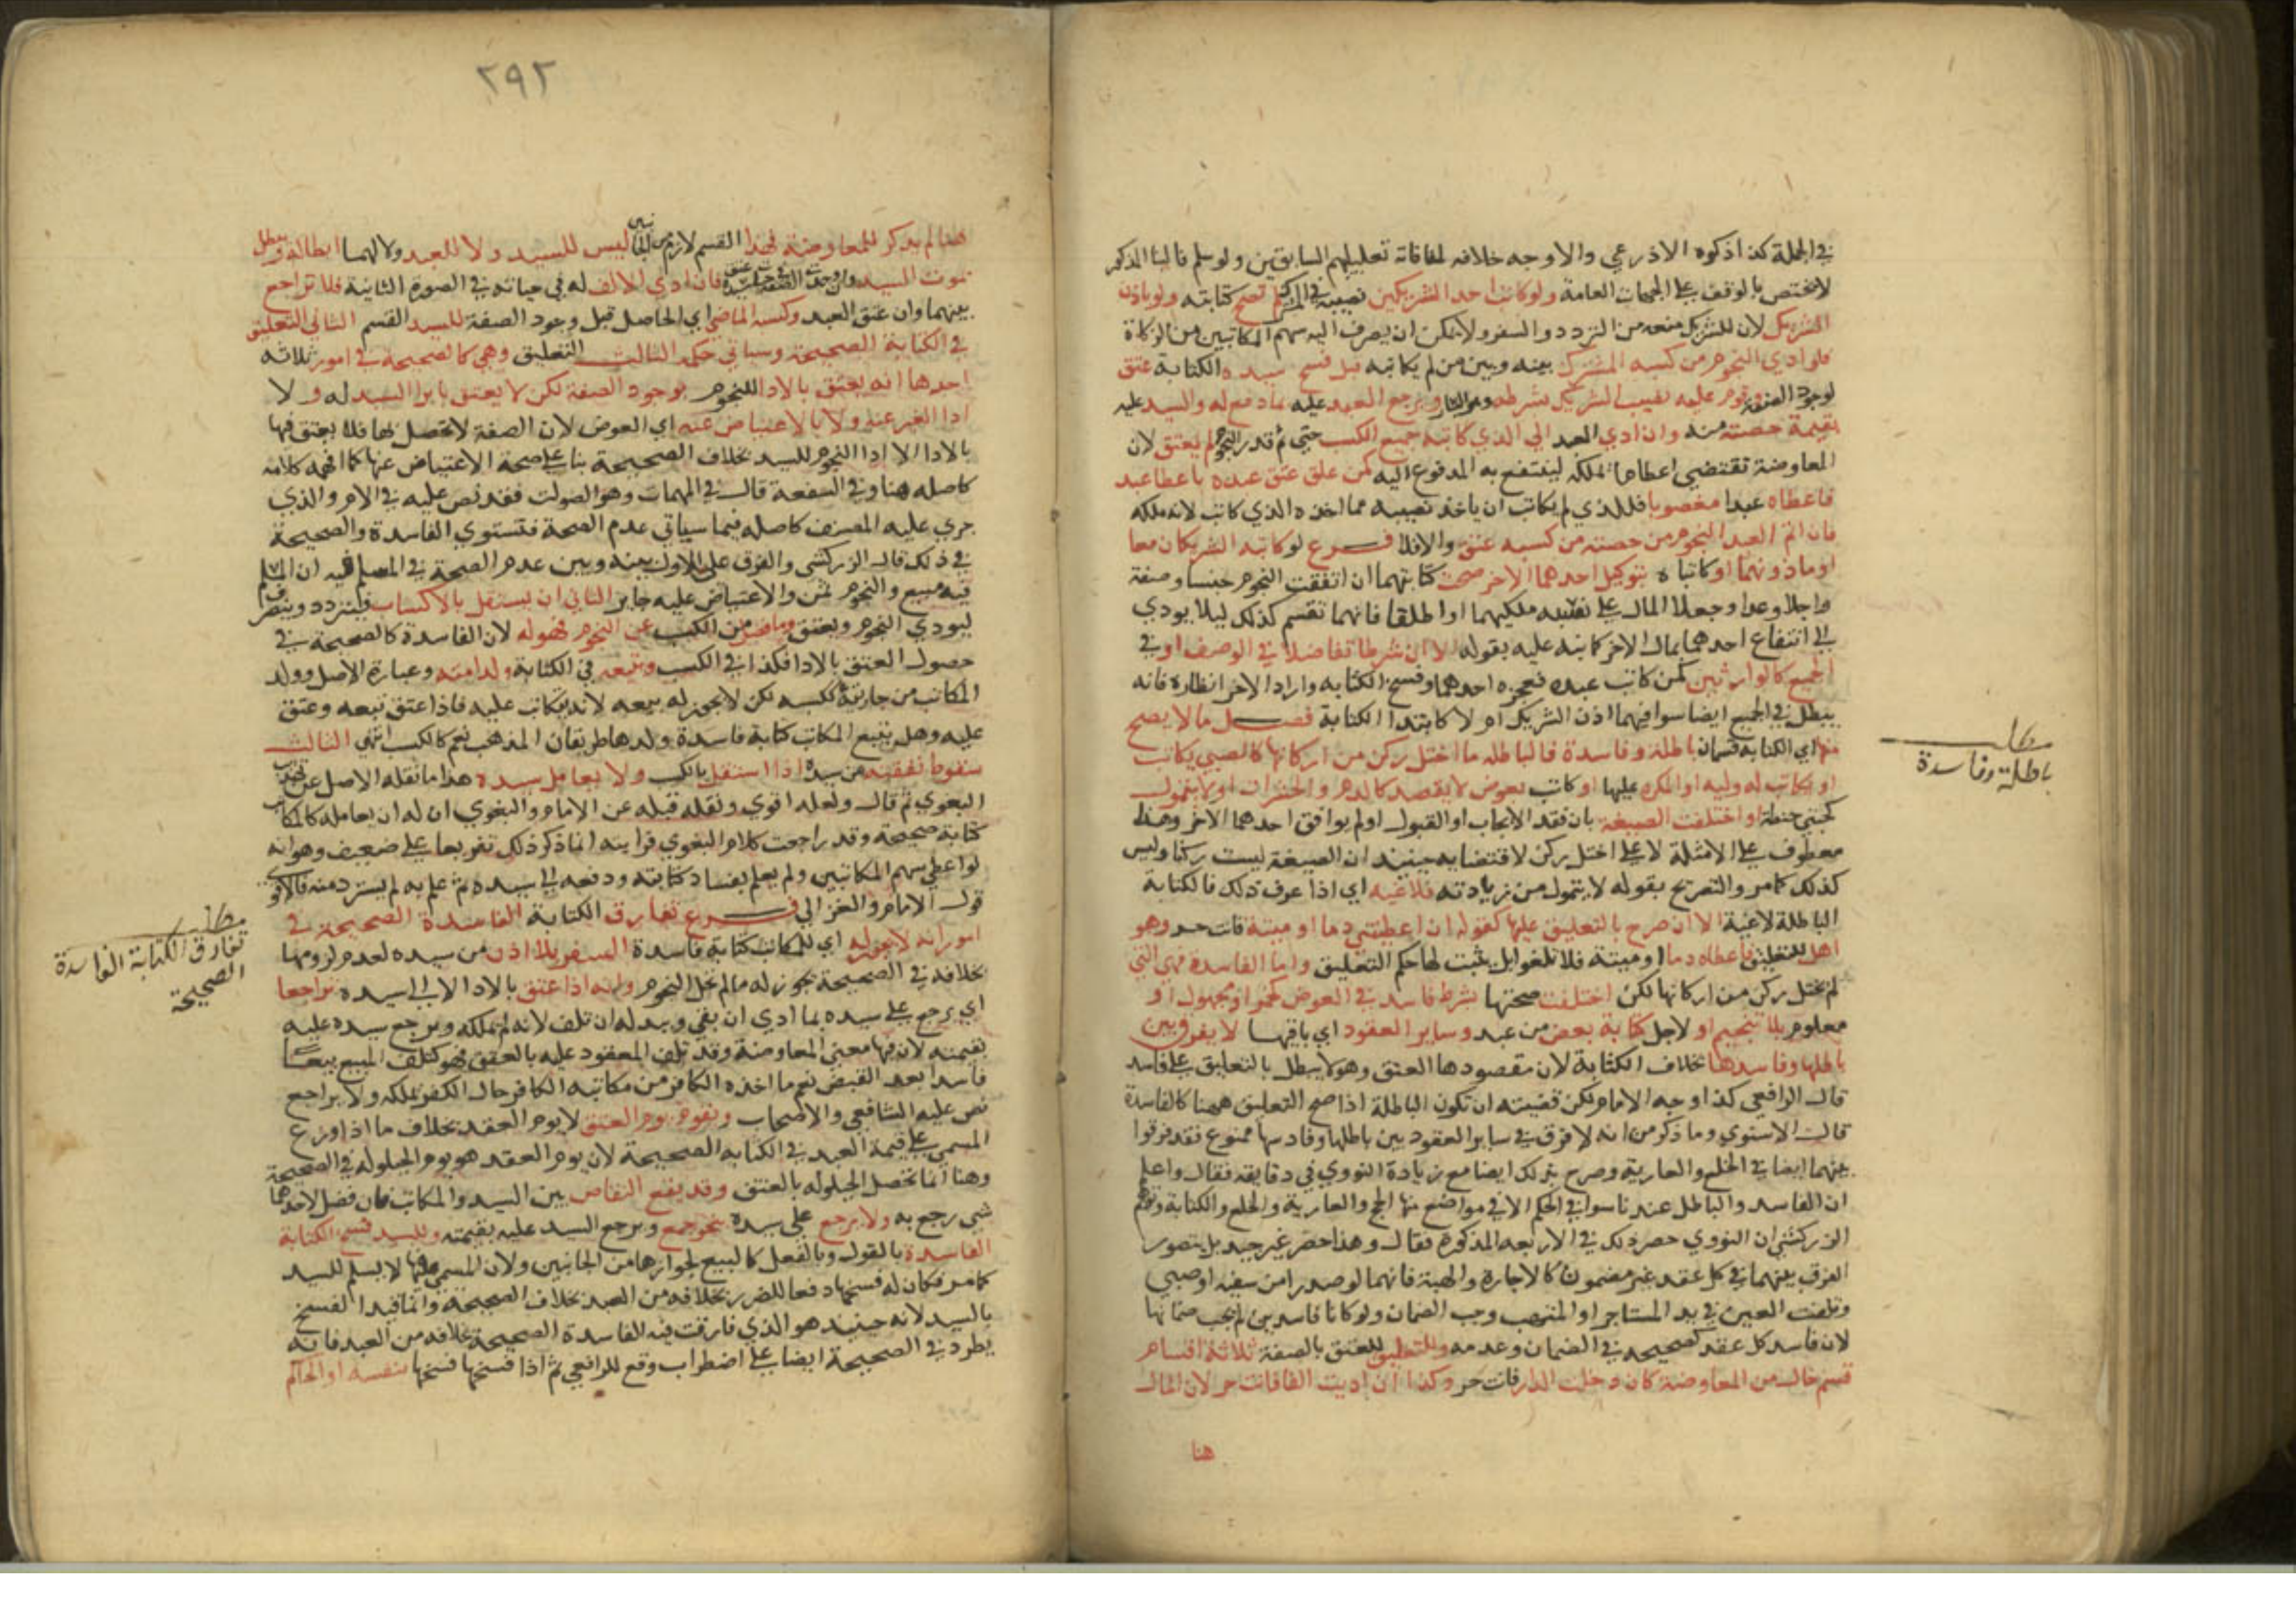 في الجملة كذا ذكره الاذرعي والاوجه خلافه لمنافاته تعليلهم السابقين ولو سلم فالبنا المذكور
لا يختص بالوقف على الجهات العامة ولو كاتب احد الشريكين نصيبه في المشترك لم تصح كتابته ولو باذن
الشريك لان للشريك منعه من التردد والسفر ولا يمكن ان يصرف اليه سهم المكاتبين من الزكاة
فلو ادي النجوم من كسبه المشترك بينه وبين من لم يكاتبه قبل فسخ سيده الكتابة عتق
لوجود الصفة وقوم عليه نصيب الشريك بشرطه وهو اليسار ويرجع العبد عليه بما دفع له والسيد عليه
بقيمة حصته منه وان ادي العبد الي الذي كاتبه جميع الكسب حتي تم قدر النجوم لم يعتق لان
المعاوضة تقتضي اعطاها لملكه لينتفع به المدفوع اليه كمن علق عتق عبده باعطا عبد
فاعطاه عبدا مغصوبا فللذي لم يكاتب ان ياخذ نصيبه مما اخذه الذي كاتب لانه ملكه
فان اتم العبد النجوم من حصته من كسبه عتق والا فلا فرع لو كاتبه الشريكان معا
او ماذونهما او كاتباه بتوكيل احدهما الاخر صحت كتابتهما ان اتفقت النجوم جنسا وصفة
واجلا وعددا وجعلا المال على نسبة ملكيهما او اطلقا فانهما تقسم كذلك ليلا يودي
الى انتفاع احدهما بمال الاخر كما نبه عليه بقوله لا ان شرطا تفاضلا في الوصف او في
الجميع كالوارثين كمن كاتب عبده فعجزه احدهما وفسخ الكتابه واراد الاخر انظاره فانه
يبطل في الجميع ايضا سوا فيهما اذن الشريك ام لا كابتدا الكتابة فصل ما لا يصح
منها اي الكتابه قسمان باطلة وفاسدة فالباطله ما اختل ركن من اركانها كالصبي يكاتب
او يكاتب له وليه او المكره عليها او كاتب بعوض لا يقصد كالدم والحشرات او لا يتمول
كحبتي حنطة او اختلفت الصيغة بان فقد الايجاب او القبول او لم يوافق احدهما الاخر وهذا
معطوف على الامثلة لا على اختل ركن لاقتضايه حينيذ ان الصيغة ليست ركنا وليس
كذلك كما مر والتصريح بقوله لا يتمول من زيادته فلاغيه اي اذا عرف ذلك فالكتابة
الباطلة لاغية الا ان صرح بالتعليق عليها كقوله ان اعطيتني دما او ميتة فانت حر وهو
اهل للتعليق فاعطاه دما او ميتة فلا تلغو بل يثبت لها حكم التعليق واما الفاسدة فهي التي
لم يختل ركن من اركانها لكن اختلفت صحتها بشرط فاسد في العوض كخمر او مجهول او
معلوم بلا تنجيم او لاجل كتابة بعض من عبد وساير العقود اي باقيها لا يفرق بين
باطلها وفاسدها بخلاف الكتابة لان مقصودها العتق وهو لا يبطل بالتعليق على فاسد
قال الرافعي كذا وجه الامام لكن قضيته ان تكون الباطلة اذا صح التعليق ههنا كالفاسدة
قال الاسنوي وما ذكر من انه لا فرق في ساير العقود بين باطلها وفاسدها ممنوع فقد فرقوا
بينهما ايضا في الخلع والعارية وصرح بذلك ايضا مع زيادة النووي في دقايقه فقال واعلم
ان الفاسد والباطل عندنا سوا في الحكم الا في مواضع منها الحج والعارية والخلع والكتابة وتوهم
الزركشي ان النووي حصر ذلك في الاربعه المذكورة فقال وهذا حصر غير جيد بل يتصور
الفرق بينهما في كل عقد غير مضمون كالاجارة والهبة فانهما لو صدرا من سفيه او صبي
وتلفت العين في يد المستاجر او المتهب وجب الضمان ولو كانا فاسدين لم يجب ضمانها
لان فاسد كل عقد كصحيحه في الضمان وعدمه وللتعليق للعتق بالصفة ثلاثة اقسام
قسم خال من المعاوضة كان دخلت الدار فانت حر وكذا ان اديت الفا فانت حر لان المال
هنا
مطلب
باطلة وفاسدة
٢٩٢
هنا لم يذكر للمعاوضة فهذا القسم لازم من الجانبين ليس للسيد ولا للعبد ولا لهما ابطاله ويبطل
بموت السيد وان وجدت الصفة عتق فان ادي الالف له في حياته في الصورة الثانية فلا تراجع
بينهما وان عتق العبد وكسبه الماضي اي الحاصل قبل وجود الصفة للسيد القسم الثاني التعليق
في الكتابة الصحيحة وسياتي حكمه الثالث التعليق وهي كالصحيحة في امور ثلاثة
احدها انه يعتق بالادا للنجوم بوجود الصفة لكن لا يعتق بابرا السيد له ولا
ادا الغير عنه ولا بالاعتياض عنه اي العوض لان الصفة لا تحصل بها فلا يعتق فيها
بالادا الا ادا النجوم للسيد بخلاف الصحيحة بنا على صحة الاعتياض عنها كما افهمه كلامه
كاصله هنا وفي الشفعة قال في المهمات وهو الصواب فقد نص عليه في الام والذي
جري عليه المصنف كاصله فيما سياتي عدم الصحة فتستوي الفاسدة والصحيحة
في ذلك قال الزركشي والفرق على الاول بينه وبين عدم الصحة في المسلم فيه ان المسلم
فيه مبيع والنجوم ثمن والاعتياض عليه جايز الثاني ان يستقل بالاكتساب فيتردد ويتصرف
ليودي النجوم ويعتق وما فضل من الكسب عن النجوم فهو له لان الفاسدة كالصحيحة في
حصول العتق بالادا فكذا في الكسب ويتبعه في الكتابة ولد امته وعبارة الاصل وولد
المكاتب من جاريته ككسبه لكن لا يجوز له بيعه لانه يتكاتب عليه فاذا عتق تبعه وعتق
عليه وهل يتبع المكاتب كتابة فاسدة ولدها طريقان المذهب نعم كالكسب انتهى الثالث
سقوط نفقته عن سيده اذا استقل بالكسب ولا يعامل سيده هذا ما نقله الاصل عن تهذيب
البغوي ثم قال ولعله اقوي ونقله قبله عن الامام والبغوي ان له ان يعامله كالمكاتب
كتابة صحيحة وقد راجعت كلام البغوي فرايته انما ذكر ذلك تفريعا على ضعيف وهو انه
لو اعطي سهم المكاتبين ولم يعلم بفساد كتابته ودفعه الى سيده ثم علم به لم يسترد منه فالاقوي
قول الامام والغزالي فرع تفارق الكتابة الفاسدة الصحيحة في
امور انه لا يجوز له اي للمكاتب كتابة فاسدة السفر بلا اذن من سيده لعدم لزومها
بخلافه في الصحيحة يجوز له ما لم يحل النجوم وانه اذا عتق بالادا لا الى سيده تراجعا
اي يرجع على سيده بما ادي ان بقي وبدله ان تلف لانه لم يملكه ويرجع سيده عليه
بقيمته لان فيها معنى المعاوضة وقد تلف المعقود عليه بالعتق فهو كتلف المبيع بيعا
فاسدا بعد القبض نعم ما اخذه الكافر من مكاتبه الكافر حال الكفر يملكه ولا يراجع
نص عليه الشافعي والاصحاب وتقوم يوم العتق لا يوم العقد بخلاف ما اذا وزع
المسمي على قيمة العبد في الكتابه الصحيحة لان يوم العقد هو يوم الحيلوله في الصحيحة
وهنا انما تحصل الحيلوله بالعتق وقد يقع التقاص بين السيد والمكاتب فان فضل لاحدهما
شي رجع به ولا يرجع على سيده بنحو جمع ويرجع السيد عليه بقيمته وللسيد فسخ الكتابة
الفاسدة بالقول وبالفعل كالبيع لجوازها من الجانبين ولان المسمي فيها لا يسلم للسيد
كما مر فكان له فسخها دفعا للضرر بخلافه من العبد بخلاف الصحيحة وانما قيد الفسخ
بالسيد لانه حينيذ هو الذي فارقت فيه الفاسدة الصحيحة بخلافه من العبد فانه
يطرد في الصحيحة ايضا على اضطراب وقع للرافعي ثم اذا فسخها فسخها بنفسه او الحاكم
مطلب
تفارق الكتابة الفاسدة
الصحيحة